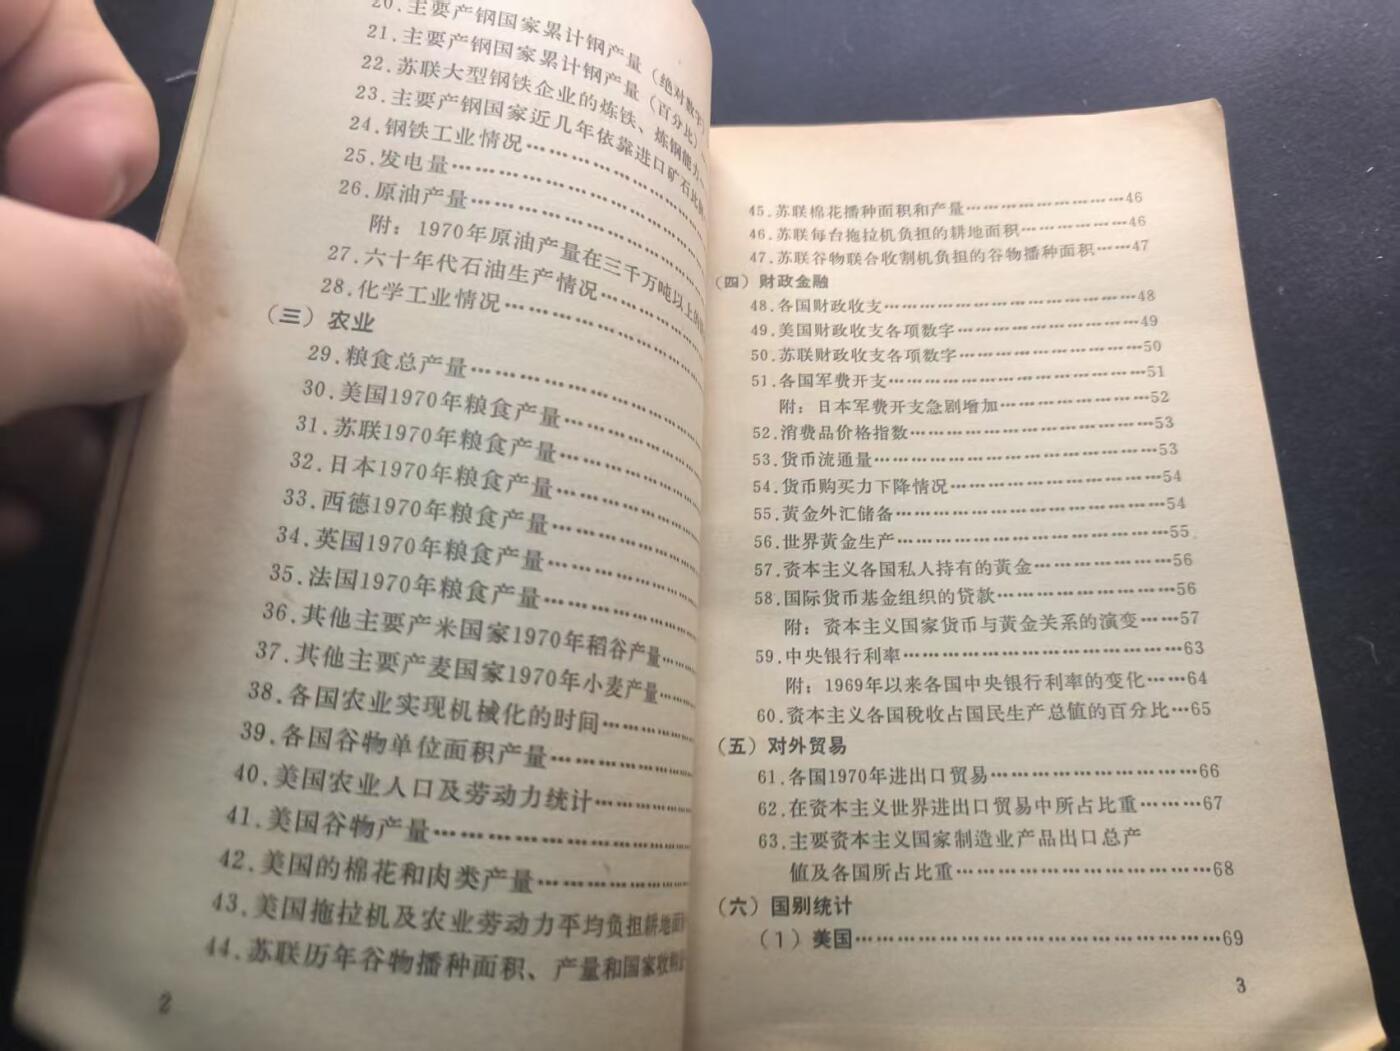 20.主要产钢国家累计钢产量（绝对数字）
21.主要产钢国家累计钢产量（百分比）
22.苏联大型钢铁企业的炼铁、炼钢能力
23.主要产钢国家近几年依靠进口矿石比例
24.钢铁工业情况
25.发电量
26.原油产量
附：1970年原油产量在三千万吨以上的
27.六十年代石油生产情况
28.化学工业情况
（三）农业
29.粮食总产量
30.美国1970年粮食产量
31.苏联1970年粮食产量
32.日本1970年粮食产量
33.西德1970年粮食产量
34.英国1970年粮食产量
35.法国1970年粮食产量
36.其他主要产米国家1970年稻谷产量
37.其他主要产麦国家1970年小麦产量
38.各国农业实现机械化的时间
39.各国谷物单位面积产量
40.美国农业人口及劳动力统计
41.美国谷物产量
42.美国的棉花和肉类产量
43.美国拖拉机及农业劳动力平均负担耕地面
44.苏联历年谷物播种面积、产量和国家收购
2
45.苏联棉花播种面积和产量……………………46
46.苏联每台拖拉机负担的耕地面积……………46
47.苏联谷物联合收割机负担的谷物播种面积……47
（四）财政金融
48.各国财政收支…………………………………48
49.美国财政收支各项数字………………………49
50.苏联财政收支各项数字………………………50
51.各国军费开支…………………………………51
附：日本军费开支急剧增加…………………52
52.消费品价格指数………………………………53
53.货币流通量……………………………………53
54.货币购买力下降情况…………………………54
55.黄金外汇储备…………………………………54
56.世界黄金生产…………………………………55
57.资本主义各国私人持有的黄金………………56
58.国际货币基金组织的贷款……………………56
附：资本主义国家货币与黄金关系的演变……57
59.中央银行利率…………………………………63
附：1969年以来各国中央银行利率的变化……64
60.资本主义各国税收占国民生产总值的百分比…65
（五）对外贸易
61.各国1970年进出口贸易………………………66
62.在资本主义世界进出口贸易中所占比重………67
63.主要资本主义国家制造业产品出口总产
值及各国所占比重……………………………68
（六）国别统计
（1）美国…………………………………………69
3